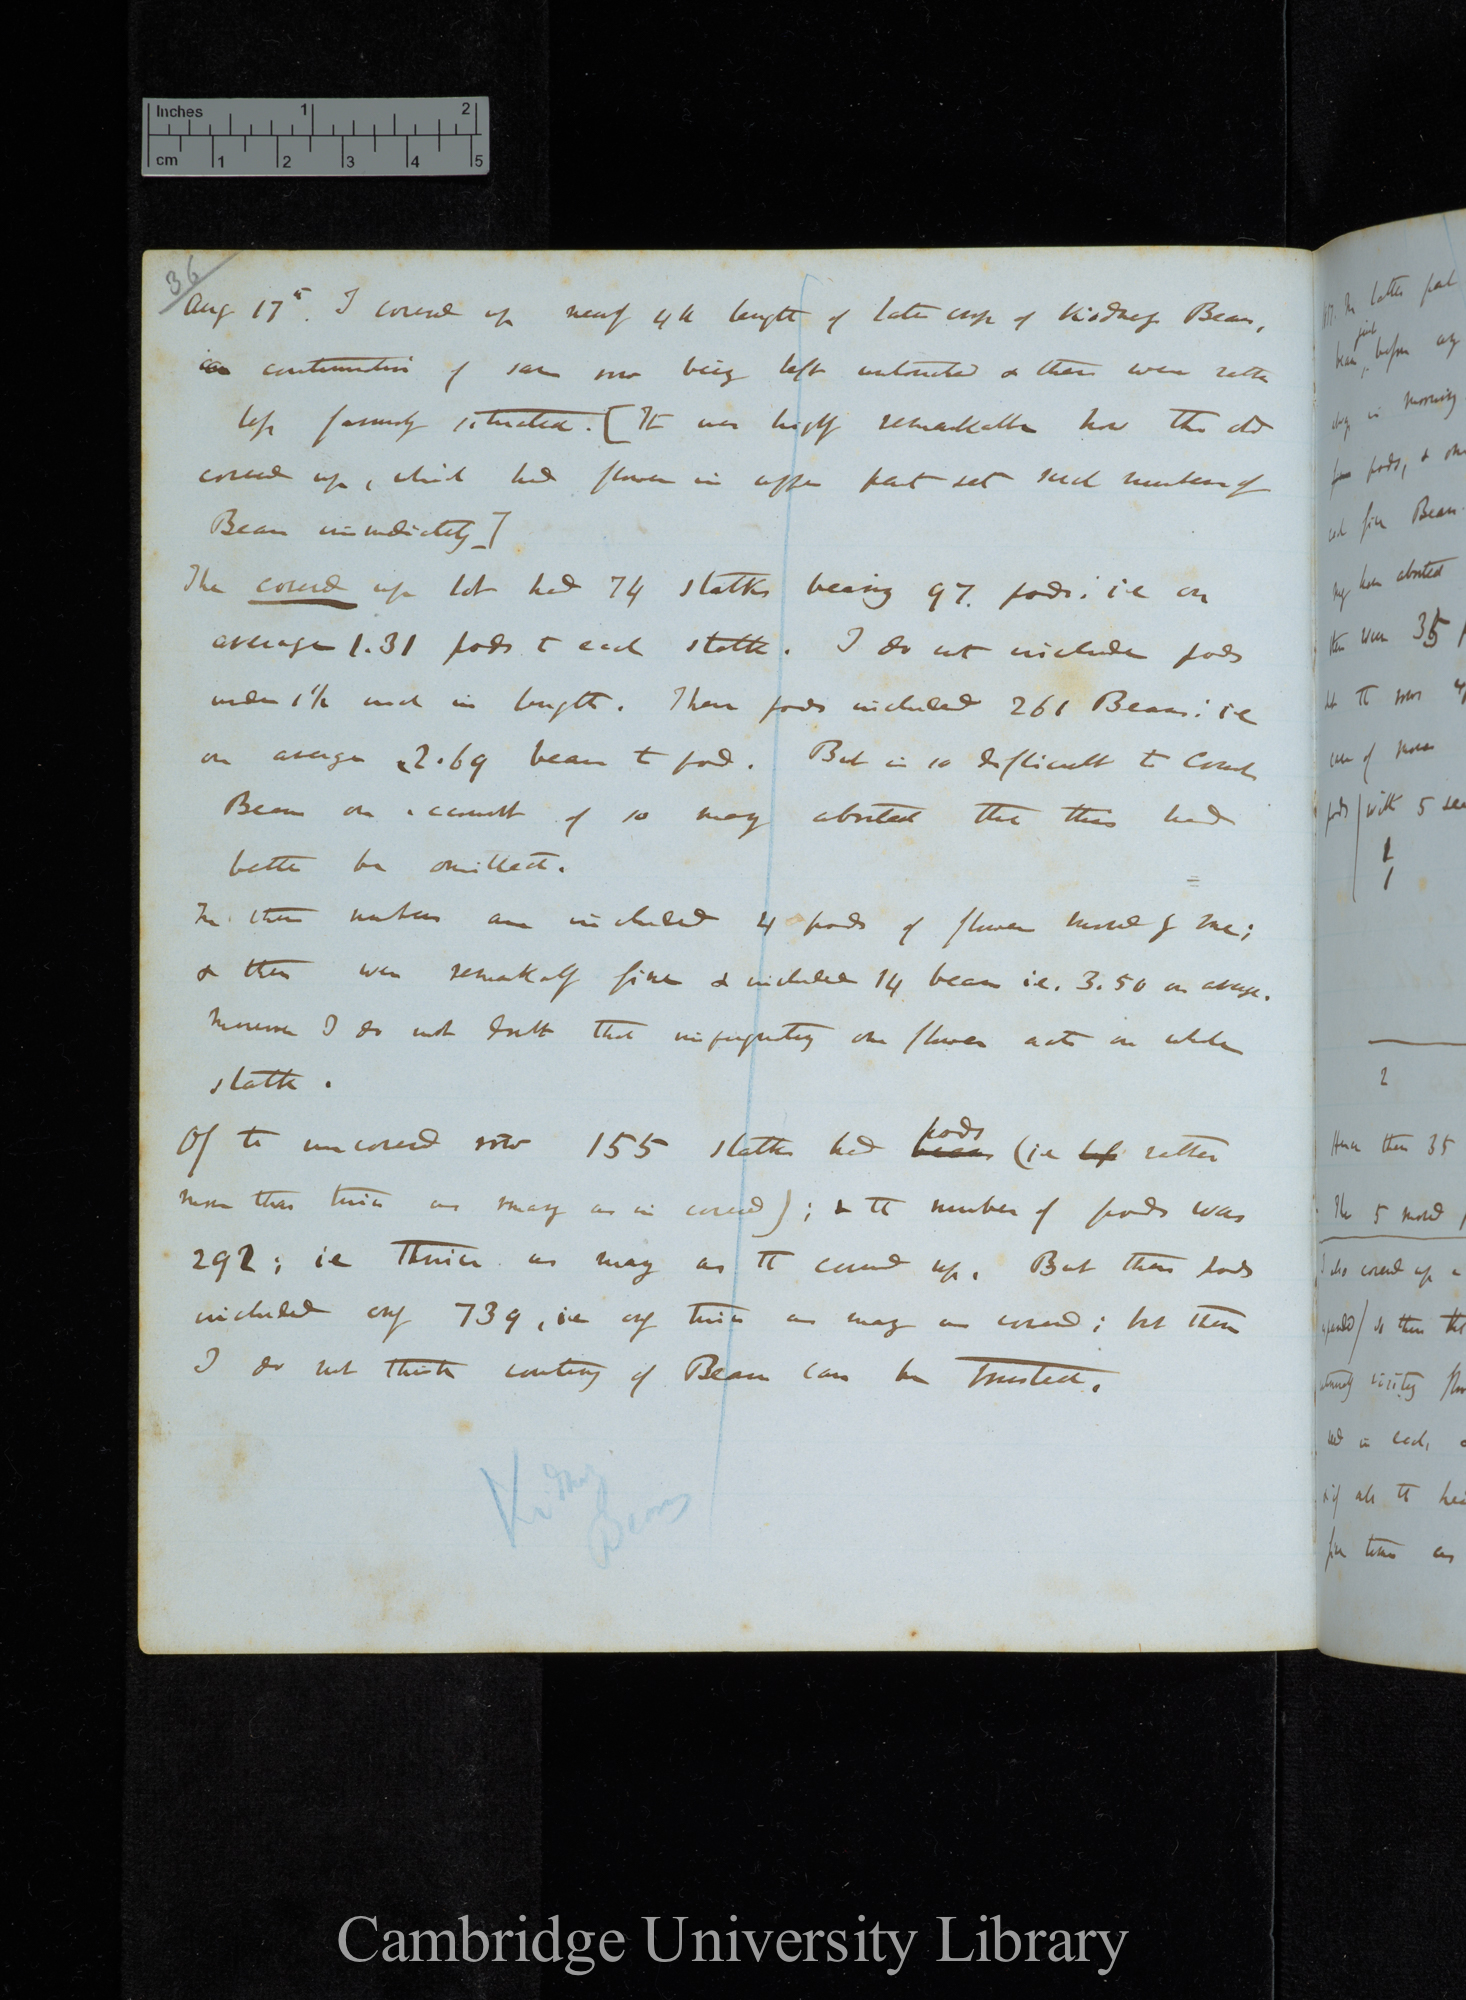 Inches 1 2
cm 1 2 3 4 5
36
Aug 17th. I covered up nearly 4 ft length of late crop of Kidney Beans,
continuation of same row being left untouched & these were rather
less favourably situated. [It was highly remarkable how the old
covered up, which had flowers in upper part set such numbers of
Beans immediately]
The covered up lot had 74 stalks bearing 97 pods: ie on
average 1.31 pods to each stalk. I do not include pods
under 1 1/2 inch in length. These pods included 261 Beans: ie
on average 2.69 beans to pod. But is so difficult to count
Beans on account of so many aborted that this had
better be omitted.
In these numbers are included 4 pods of flowers moved by me;
& these were remarkably fine & included 14 beans i.e. 3.50 on average.
Moreover I do not doubt that impregnating one flower acts on whole
stalk.
Of the uncovered row 155 stalks had beans pods (ie less rather
more than twice as many as in covered); & the number of pods was
292; ie thrice as many as the covered up. But these pods
included only 739, ie only twice as many as covered; but then
I do not think counting of Beans can be trusted.
Kidney
Beans
latter part
before any
in morning
pods, & one
fine Beans
aborted
then were 35
case of
pods with 5
1
1
2
Hence these 35
The 5 moved
I also covered up
visiting
in each,
if all the
five times as
Cambridge University Library